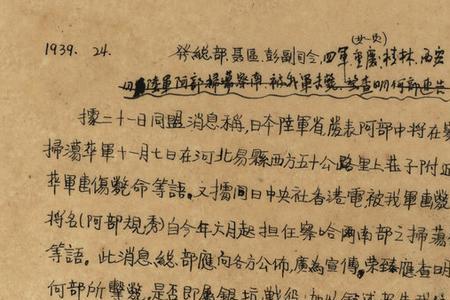 (廿一史)
1939. 24. 發總部聶區、彭副司令、四軍、重慶、桂林、西安
陸軍阿部掃蕩察南被我軍 查明何部速告
據二十一日同盟消息稱,日本陸軍省發表阿部中將在
掃蕩華軍十一月七日在河北易縣西方五十公路里上莊子附近
華軍重傷斃命等語。又據同日中央社香港電被我軍重斃
將名(阿部規秀)自今年六月起担任察哈爾南部之掃蕩
等語。此消息,總部應向各方公佈,廣為宣傳。榮臻應查明
何部所擊斃,是否即屬銀坊戰役,